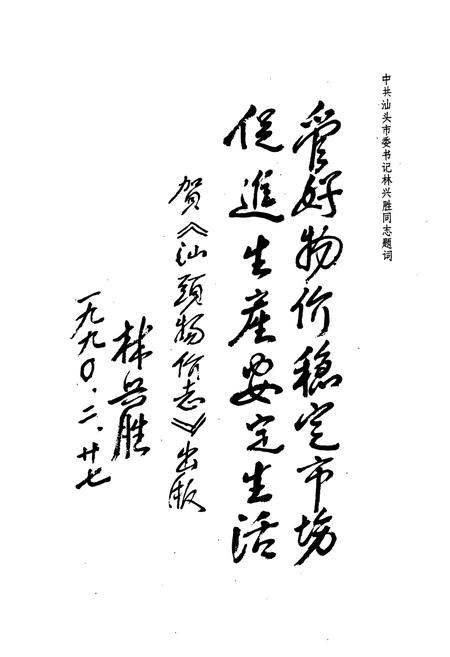 中共汕头市委书记林兴胜同志题词
管好物价稳定市场
促進生産安定生活
贺《汕頭物价志》出版
林兴胜
一九九〇.二.廿七